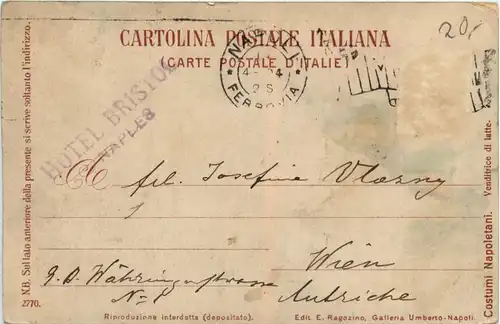 20,
CARTOLINA POSTALE ITALIANA
(CARTE POSTALE D'ITALIE)
NAPOLI
FERROVIA
HOTEL BRISTOL
NAPLES
N.B. Sul lato anteriore della presente si scrive soltanto l'indirizzo.
A frl. Josefine Vlozny
Wien
Währingerstrasse
No 8
Autriche
2770.
Riproduzione interdetta (depositato).
Edit. E. Ragozino, Galleria Umberto-Napoli.
Costumi Napoletani. Venditrice di latte.